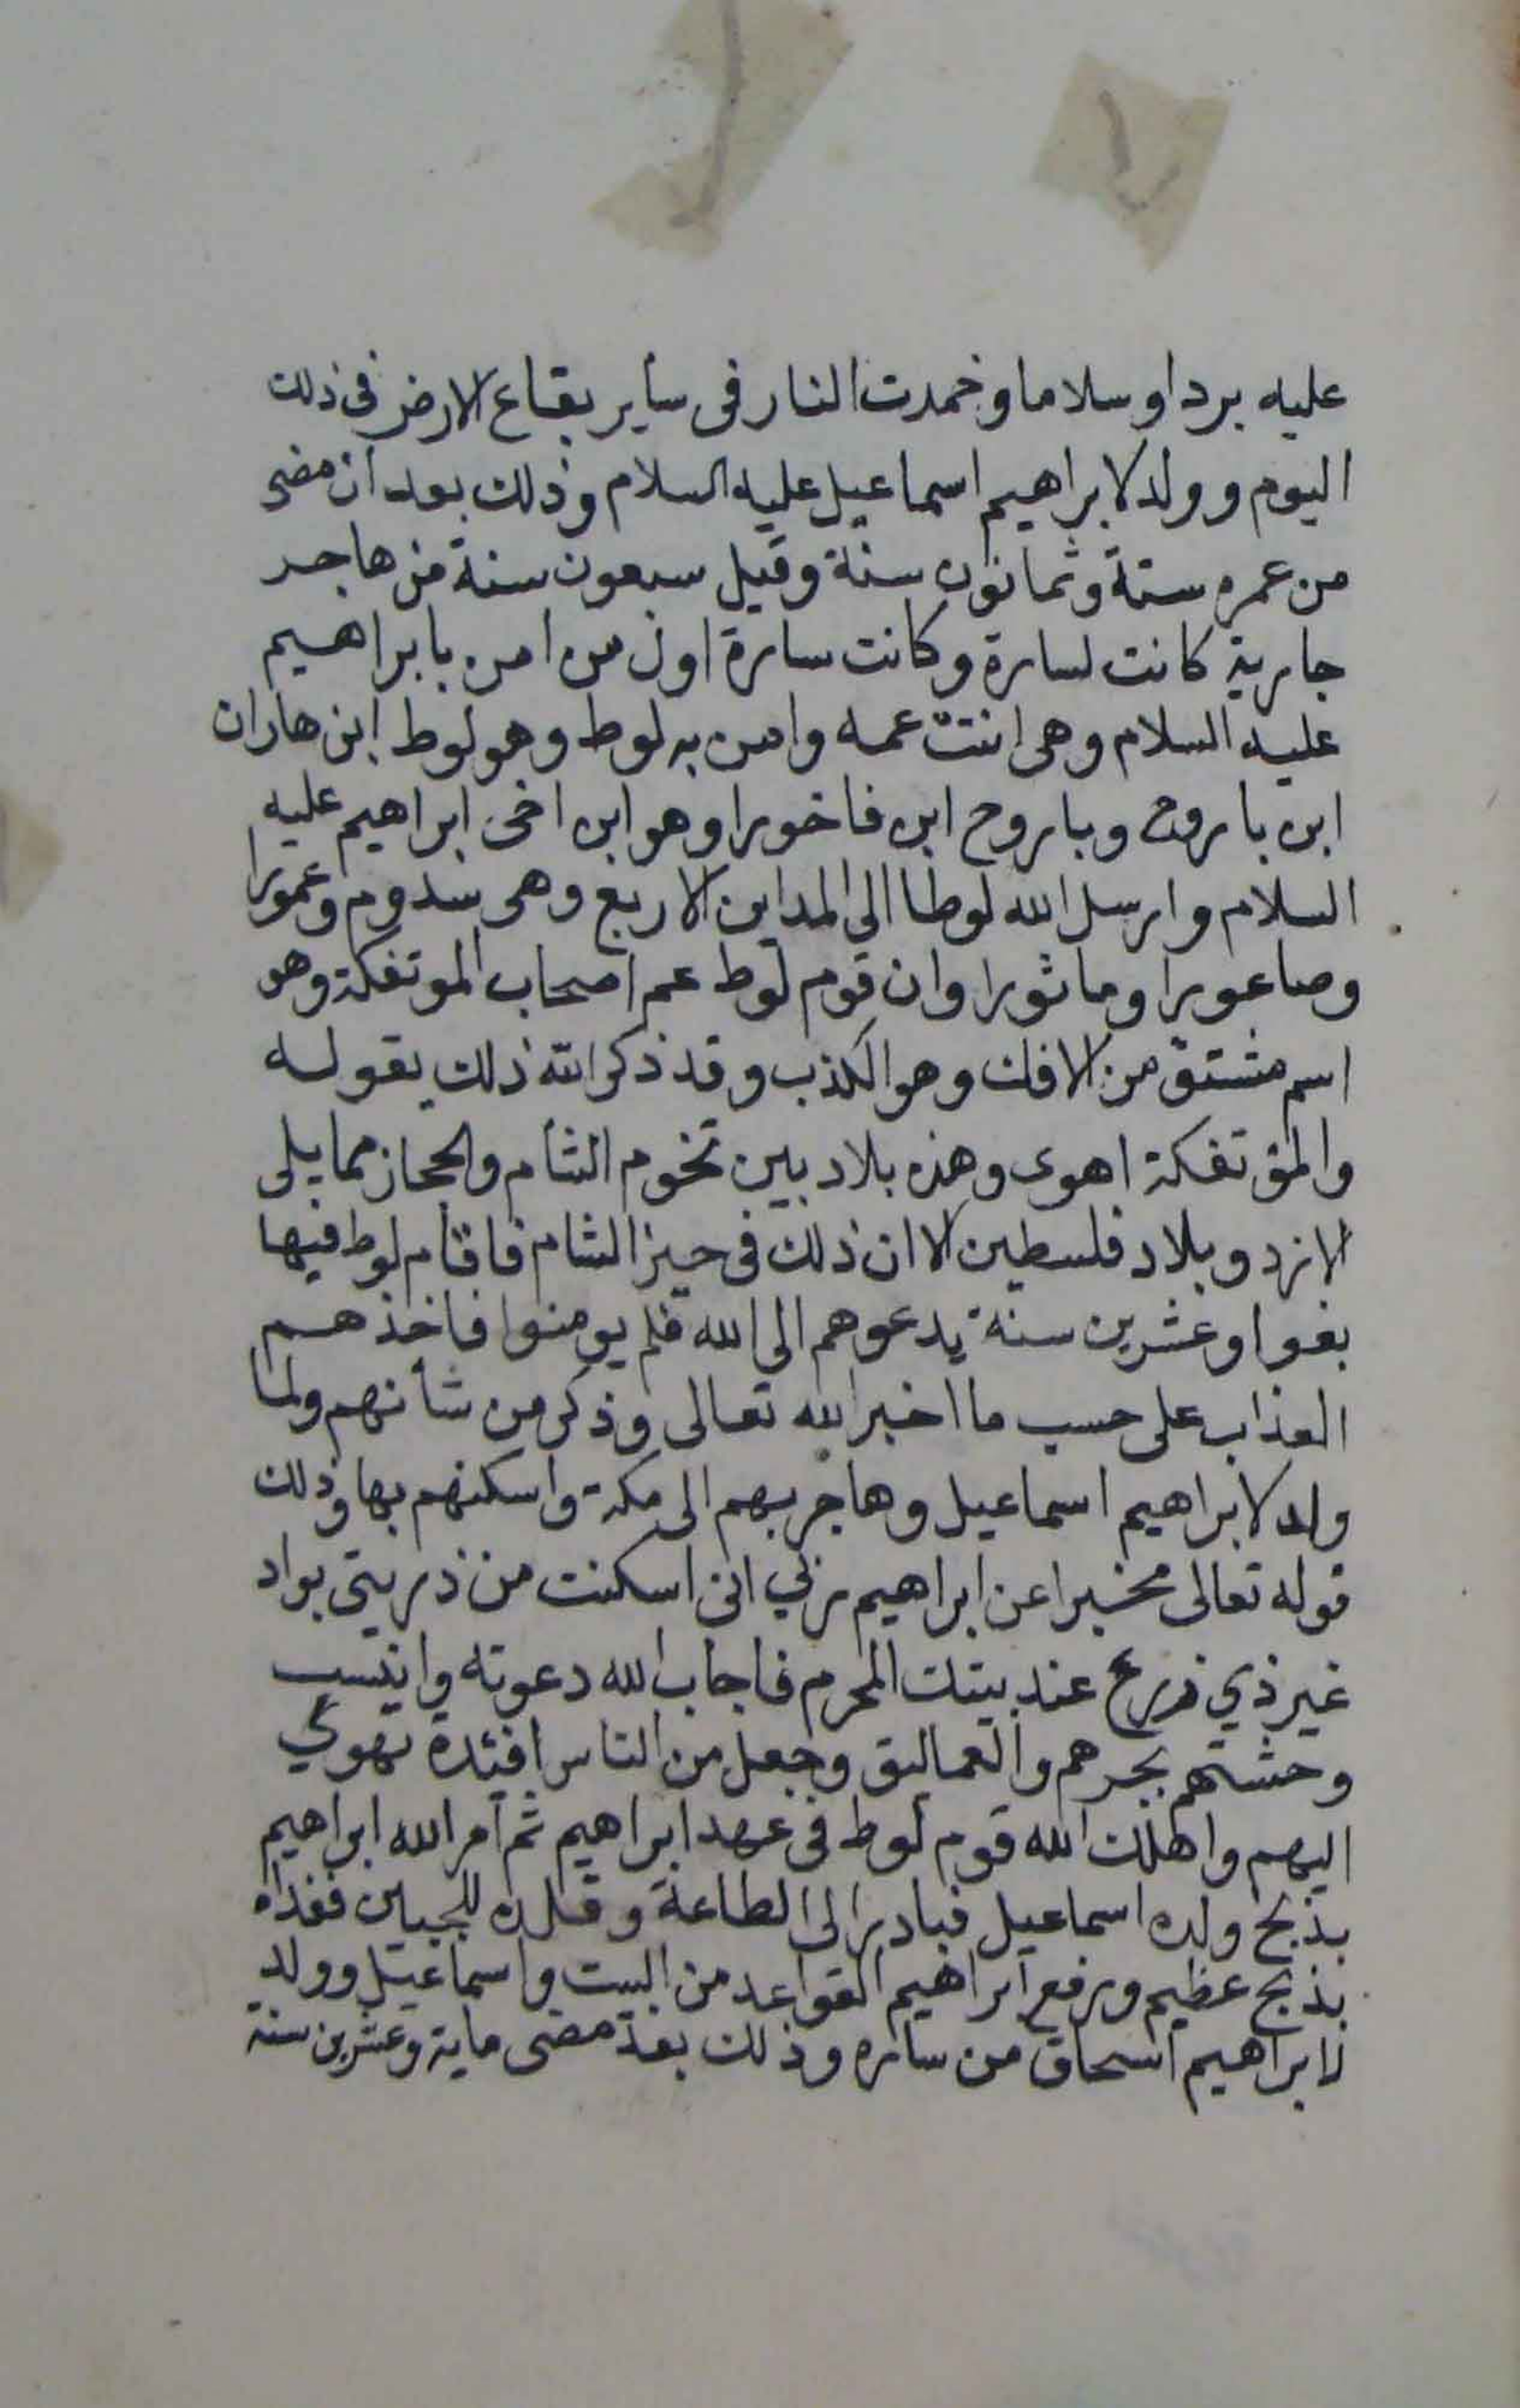 عليه بردا وسلاما وخمدت النار فى ساير بقاع الارض فى ذلك
اليوم وولد لابراهيم اسماعيل عليه السلام وذلك بعد ان مضى
من عمره ستة وثمانون سنة وقيل سبعون سنة من هاجر
جارية كانت لسارة وكانت سارة اول من امن بابراهيم
عليه السلام وهى ابنت عمه وامن به لوط وهو لوط ابن هاران
ابن باروح وباروح ابن فاخورا وهو ابن اخى ابراهيم عليه
السلام وارسل الله لوطا الى المداين الاربع وهى سدوم وعمورا
وصاعورا وماثورا وان قوم لوط عم اصحاب الموتفكة وهو
اسم مشتق من الافك وهو الكذب وقد ذكر الله ذلك بقوله
والمؤتفكة اهوى وهذه بلاد بين تخوم الشام والحجاز مما يلى
الازد وبلاد فلسطين الا ان ذلك فى حيز الشام فاقام لوط فيها
بغوا وعشرين سنة يدعوهم الى الله فلم يومنوا فاخذهم
العذاب على حسب ما اخبر الله تعالى وذكر من شأنهم ولما
ولد لابراهيم اسماعيل وهاجر بهم الى مكة واسكنهم بها وذلك
قوله تعالى مخبرا عن ابراهيم ربي انى اسكنت من ذريتى بواد
غير ذي زرع عند بيتك المحرم فاجاب الله دعوته وانيس
وحشتهم بجرهم والعماليق وجعل من الناس افيئدة تهوي
اليهم واهلك الله قوم لوط فى عهد ابراهيم ثم امر الله ابراهيم
بذبح ولده اسماعيل فبادر الى الطاعة وتله للجبين ففداه
بذبح عظيم ورفع ابراهيم القواعد من البيت واسماعيل وولد
لابراهيم اسحاق من ساره وذلك بعد مضى ماية وعشرين سنة